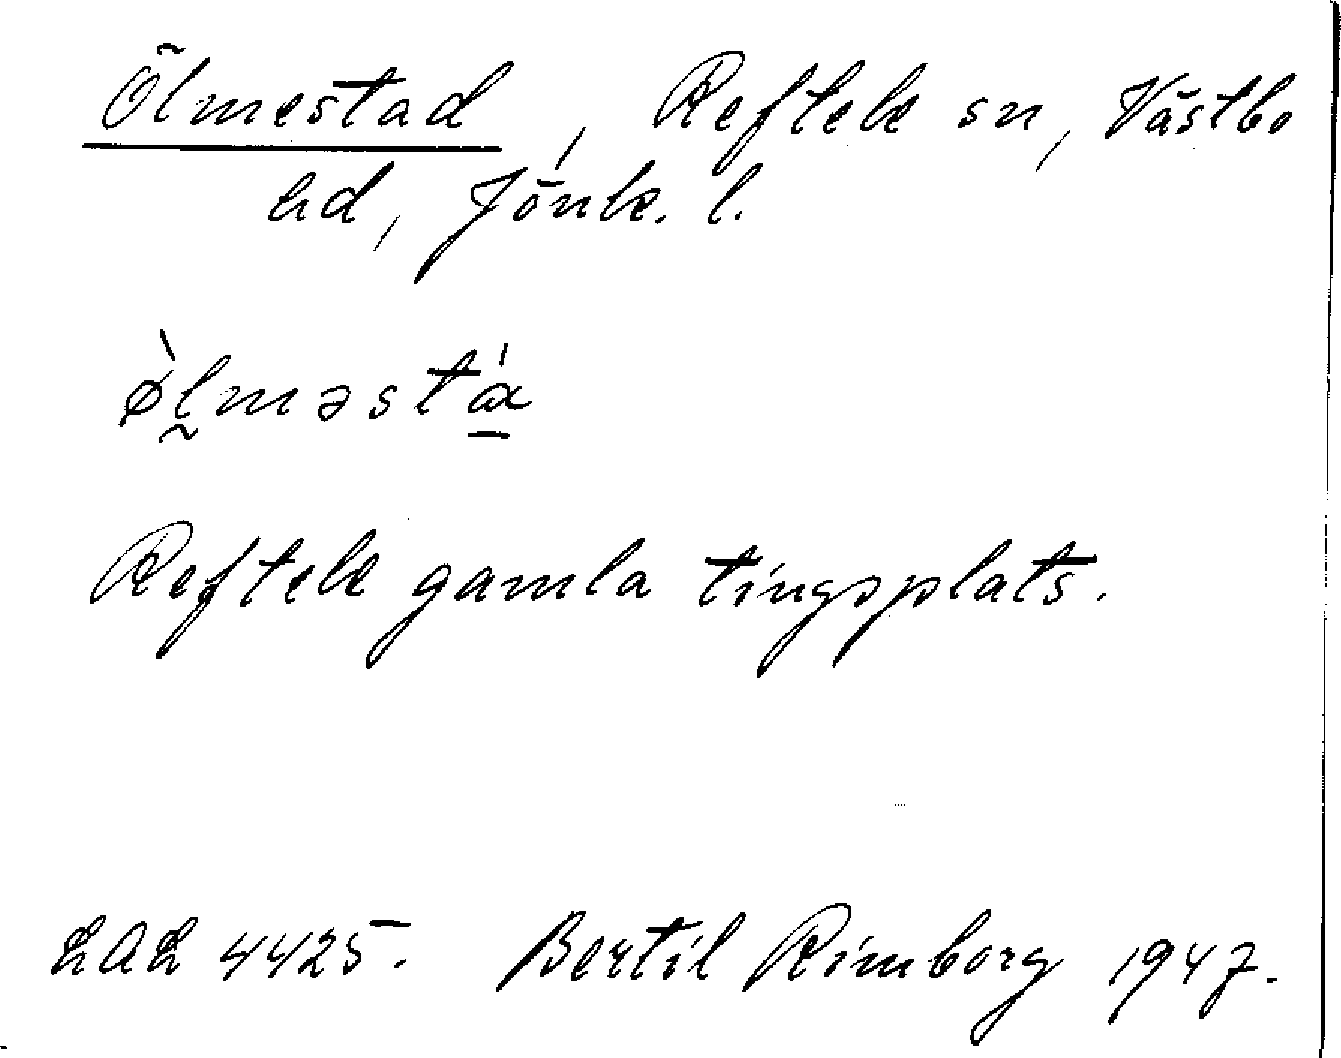 Ölmestad, Reftele sn, Västbo
hd, Jönk. l.
ø̀l̰məstɑ̱́
Reftele gamla tingsplats.
LAL 4425. Bertil Rimborg 1947.